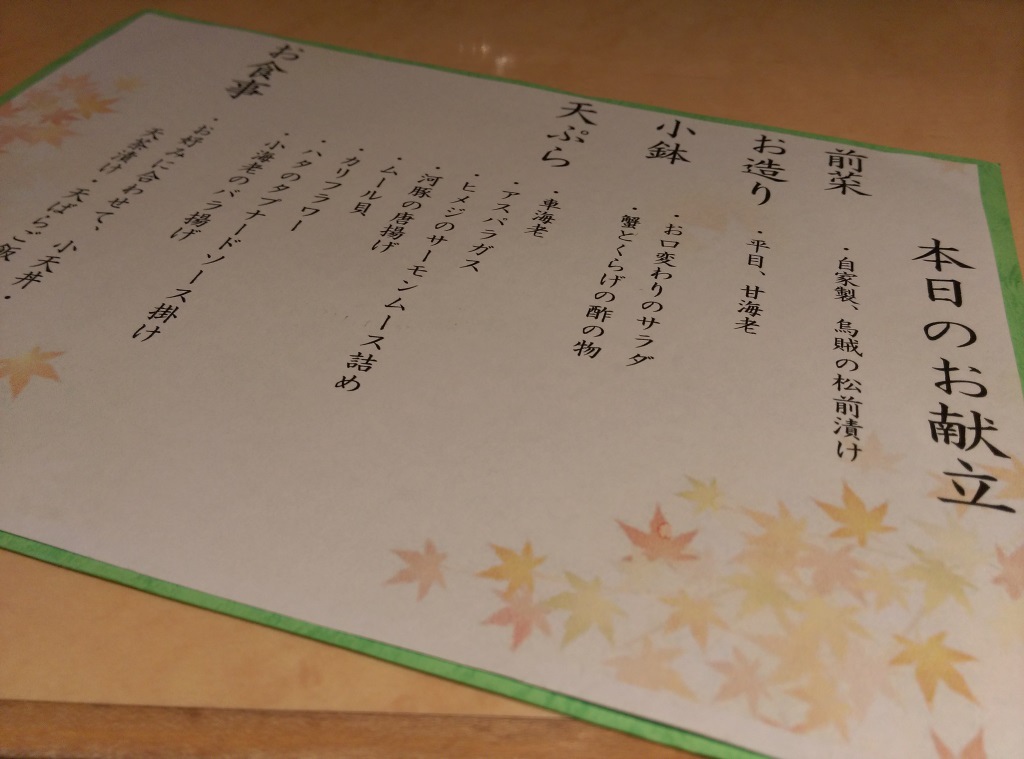 本日のお献立
前菜
・自家製、烏賊の松前漬け
お造り
・平目、甘海老
小鉢
・お口変わりのサラダ
・蟹とくらげの酢の物
天ぷら
・車海老
・アスパラガス
・ヒメジのサーモンムース詰め
・河豚の唐揚げ
・ムール貝
・カリフラワー
・ハタのタプナードソース掛け
・小海老のバラ揚げ
お食事
・お好みに合わせて、小天丼・
天茶漬け・天ばらご飯